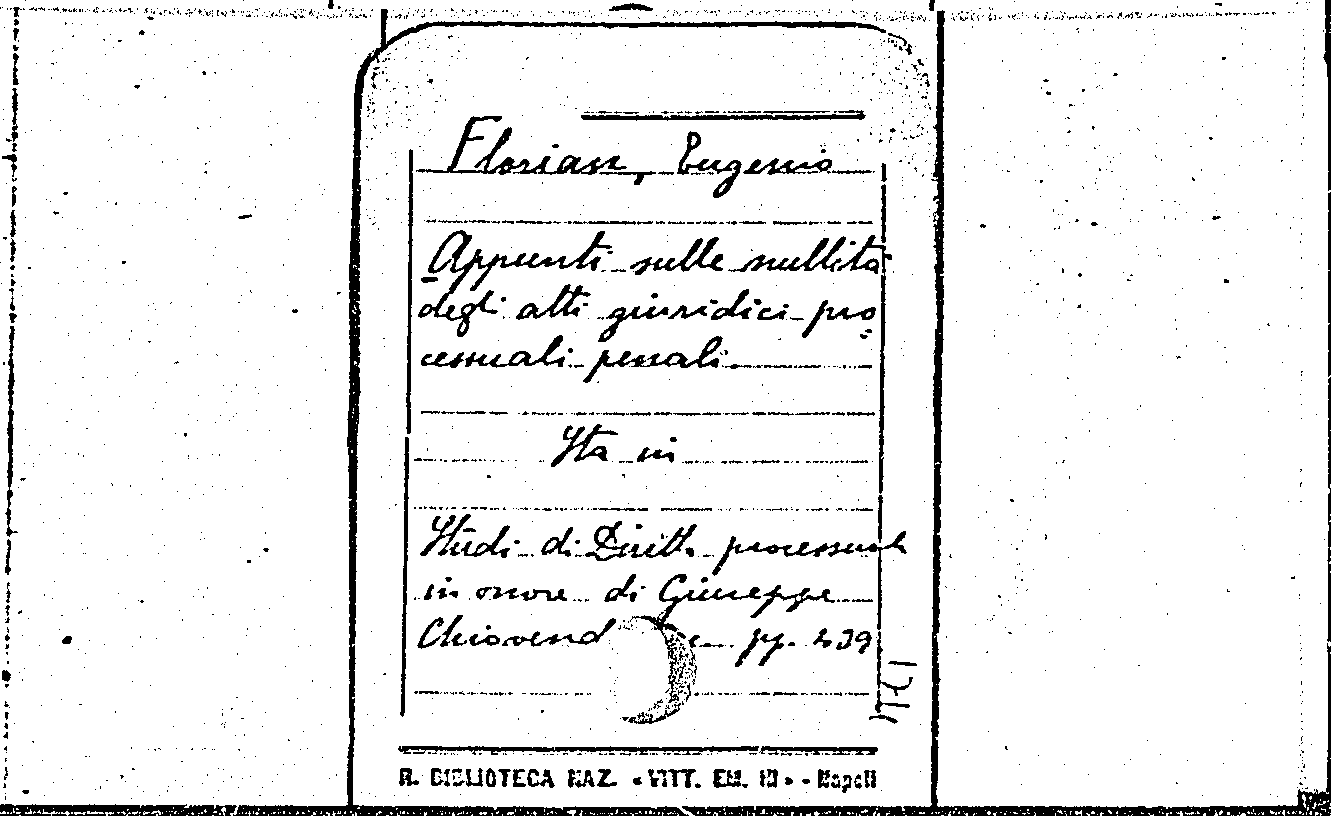 Florian, Eugenio
Appunti sulle nullità
degli atti giuridici pro
cessuali penali.
Sta in
Studi di Diritto processuale
in onore di Giuseppe
Chiovend pp. 439
R. BIBLIOTECA NAZ. «VITT. EM. III» - Napoli